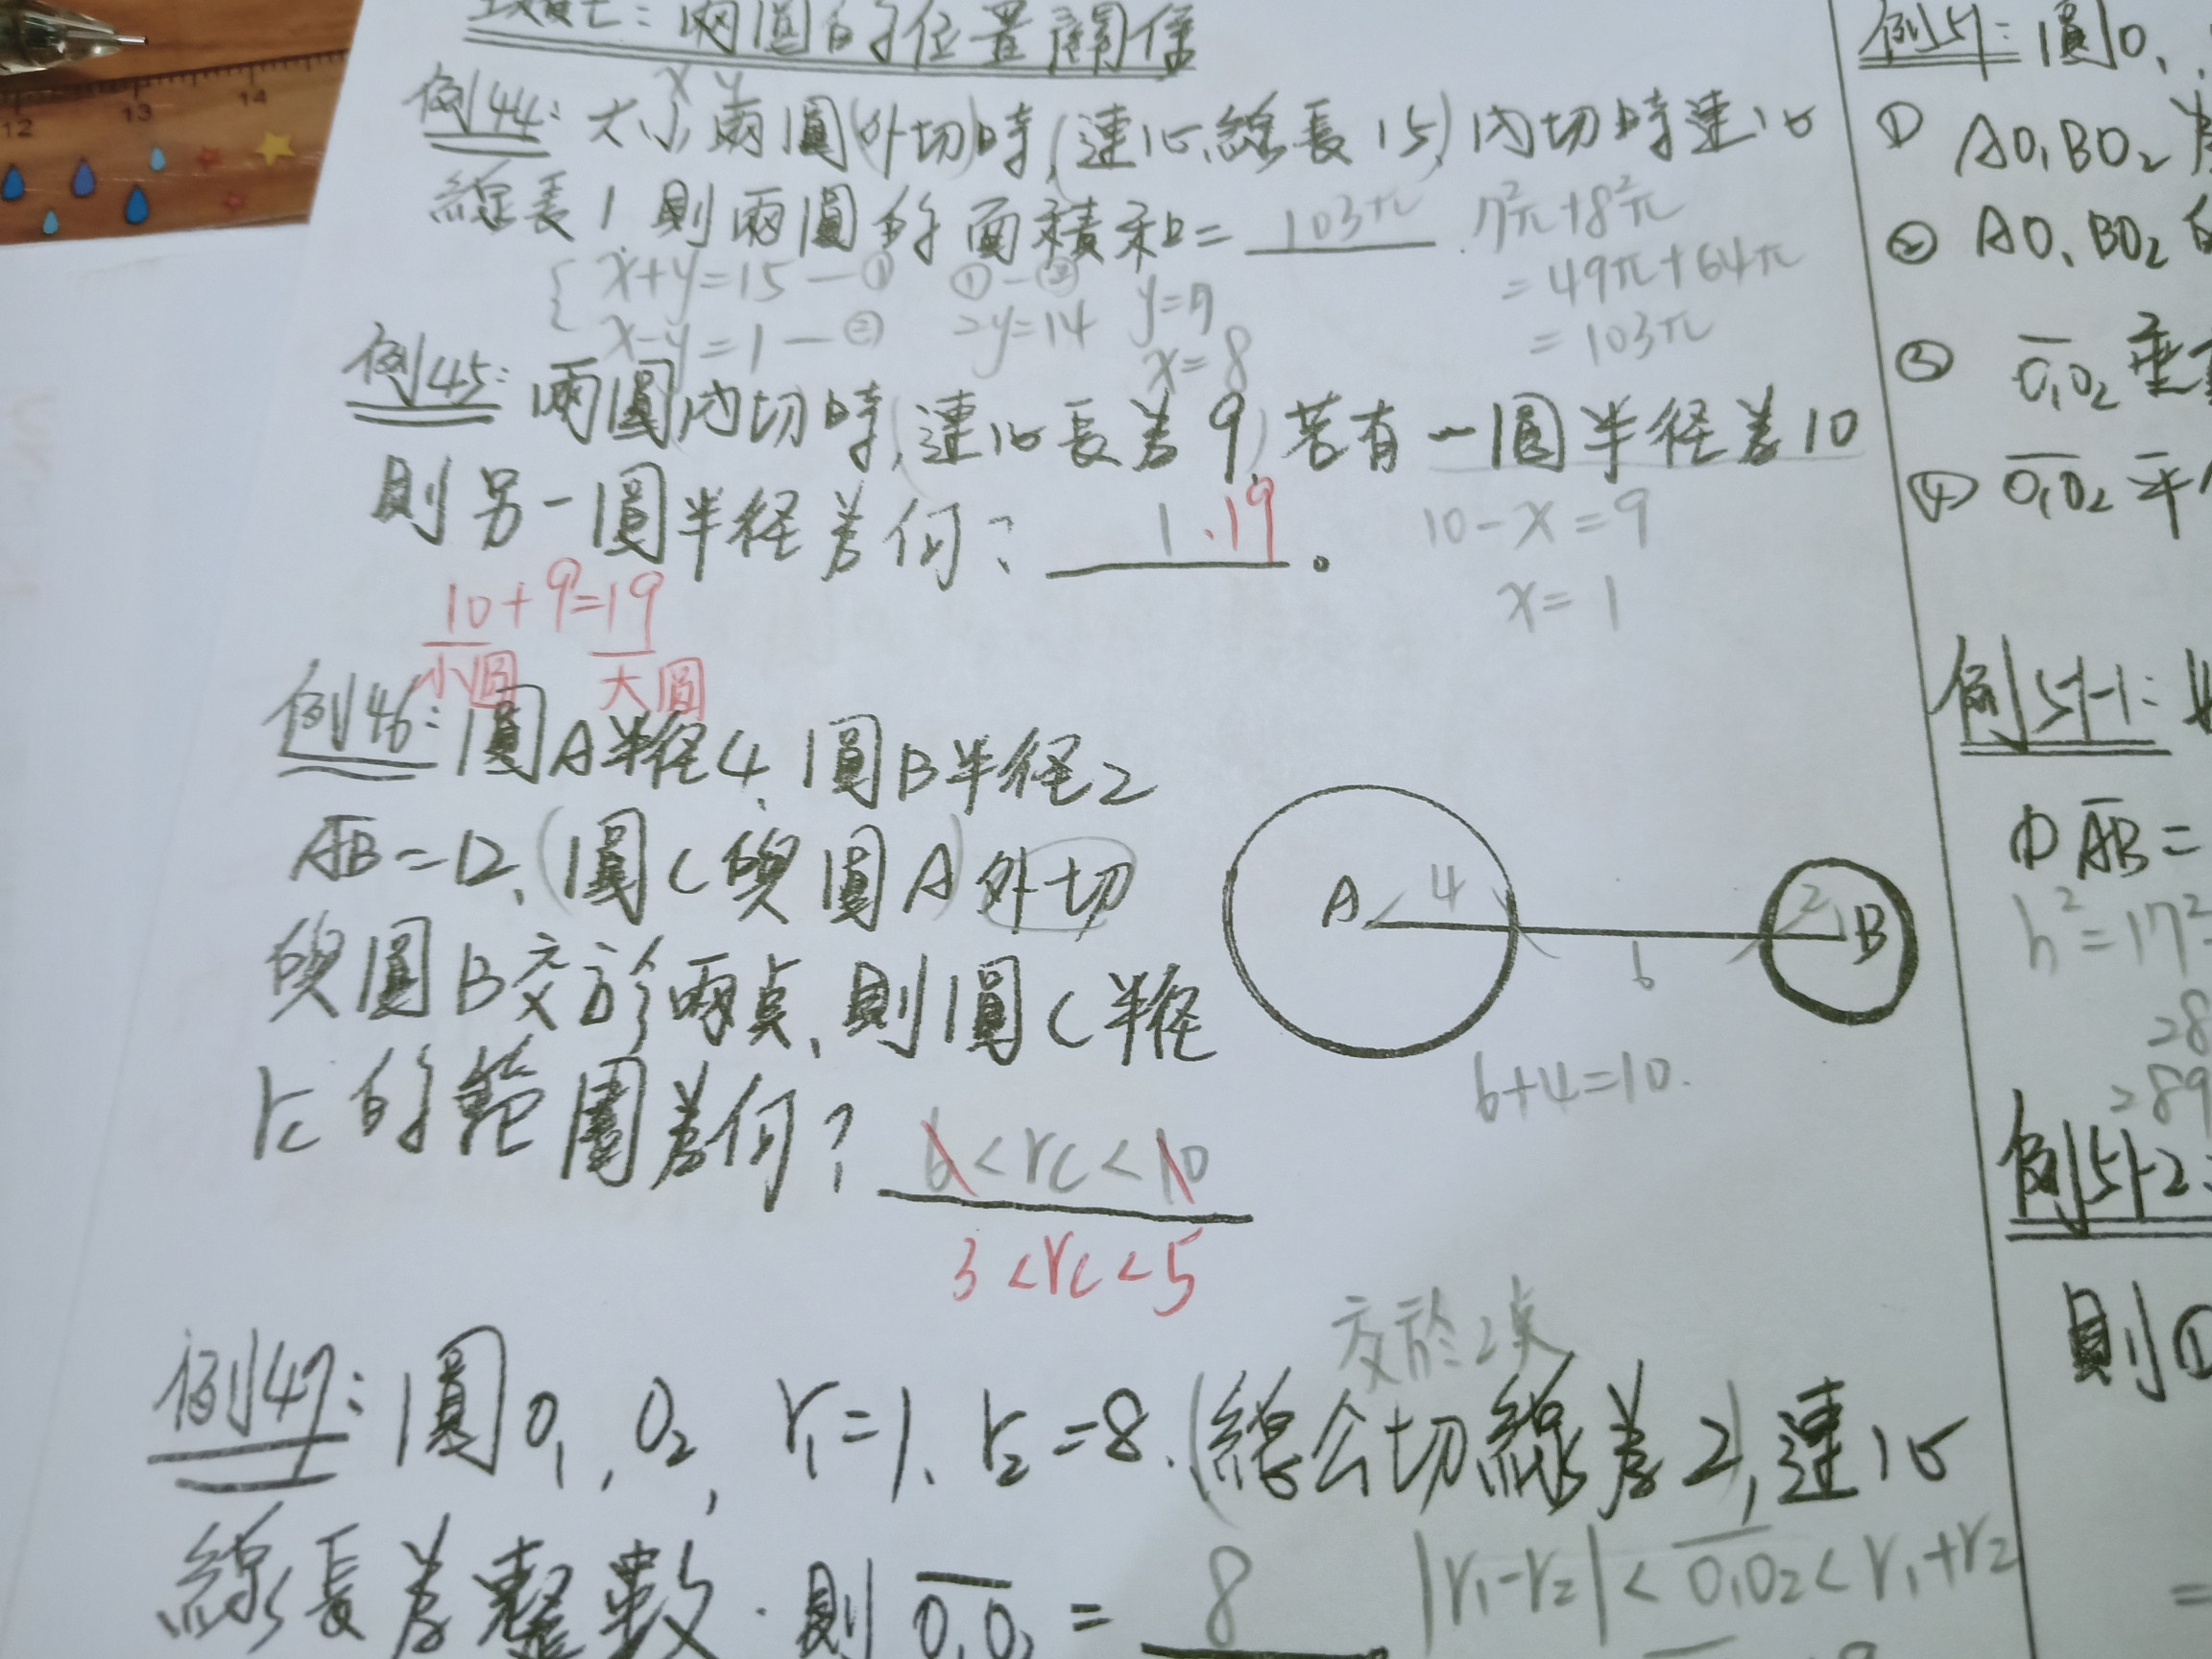 兩圓的位置關係
例44: 大小兩圓(外切)時,(連心線長15),內切時連心
x y
線長1則兩圓的面積和= 103π . 7²π+8²π
x+y=15—① ①-② =49π+64π
x-y=1—② 2y=14 y=7 =103π
x=8
例45: 兩圓內切時,(連心長為9)若有一圓半径為10
則另一圓半径為何? 1.19 。
10-x=9
x=1
10+9=19
小圓 大圓
例46: 圓A半径4、圓B半径2
AB=12、(圓C與圓A)外切
與圓B交於兩点、則圓C半径
rc的範圍為何? 6<rc<10
3<rc<5
A 4 6 2 B
6+4=10.
交於2点
例47: 圓O₁,O₂, r₁=1、r₂=8.(總公切線為2),連心
線長為整數.則O₁O₂= 8
|r₁-r₂|<O₁O₂<r₁+r₂
例51: 圓O₁,
① AO₁BO₂
② AO₁BO₂
③ O₁O₂垂
④ O₁O₂平
例51-1:
① AB=
h²=17²
28
289
例51-2:
則①
=